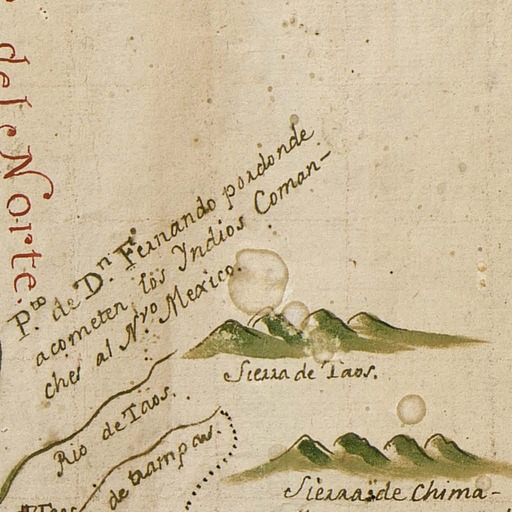 del Norte.
Pto. de Dn. Fernando por donde
acometen los Yndios Coman-
ches al Nvo. Mexico.
Sierra de Taos.
Rio de Taos.
de trampas.
Sierra de Chima-
Taos